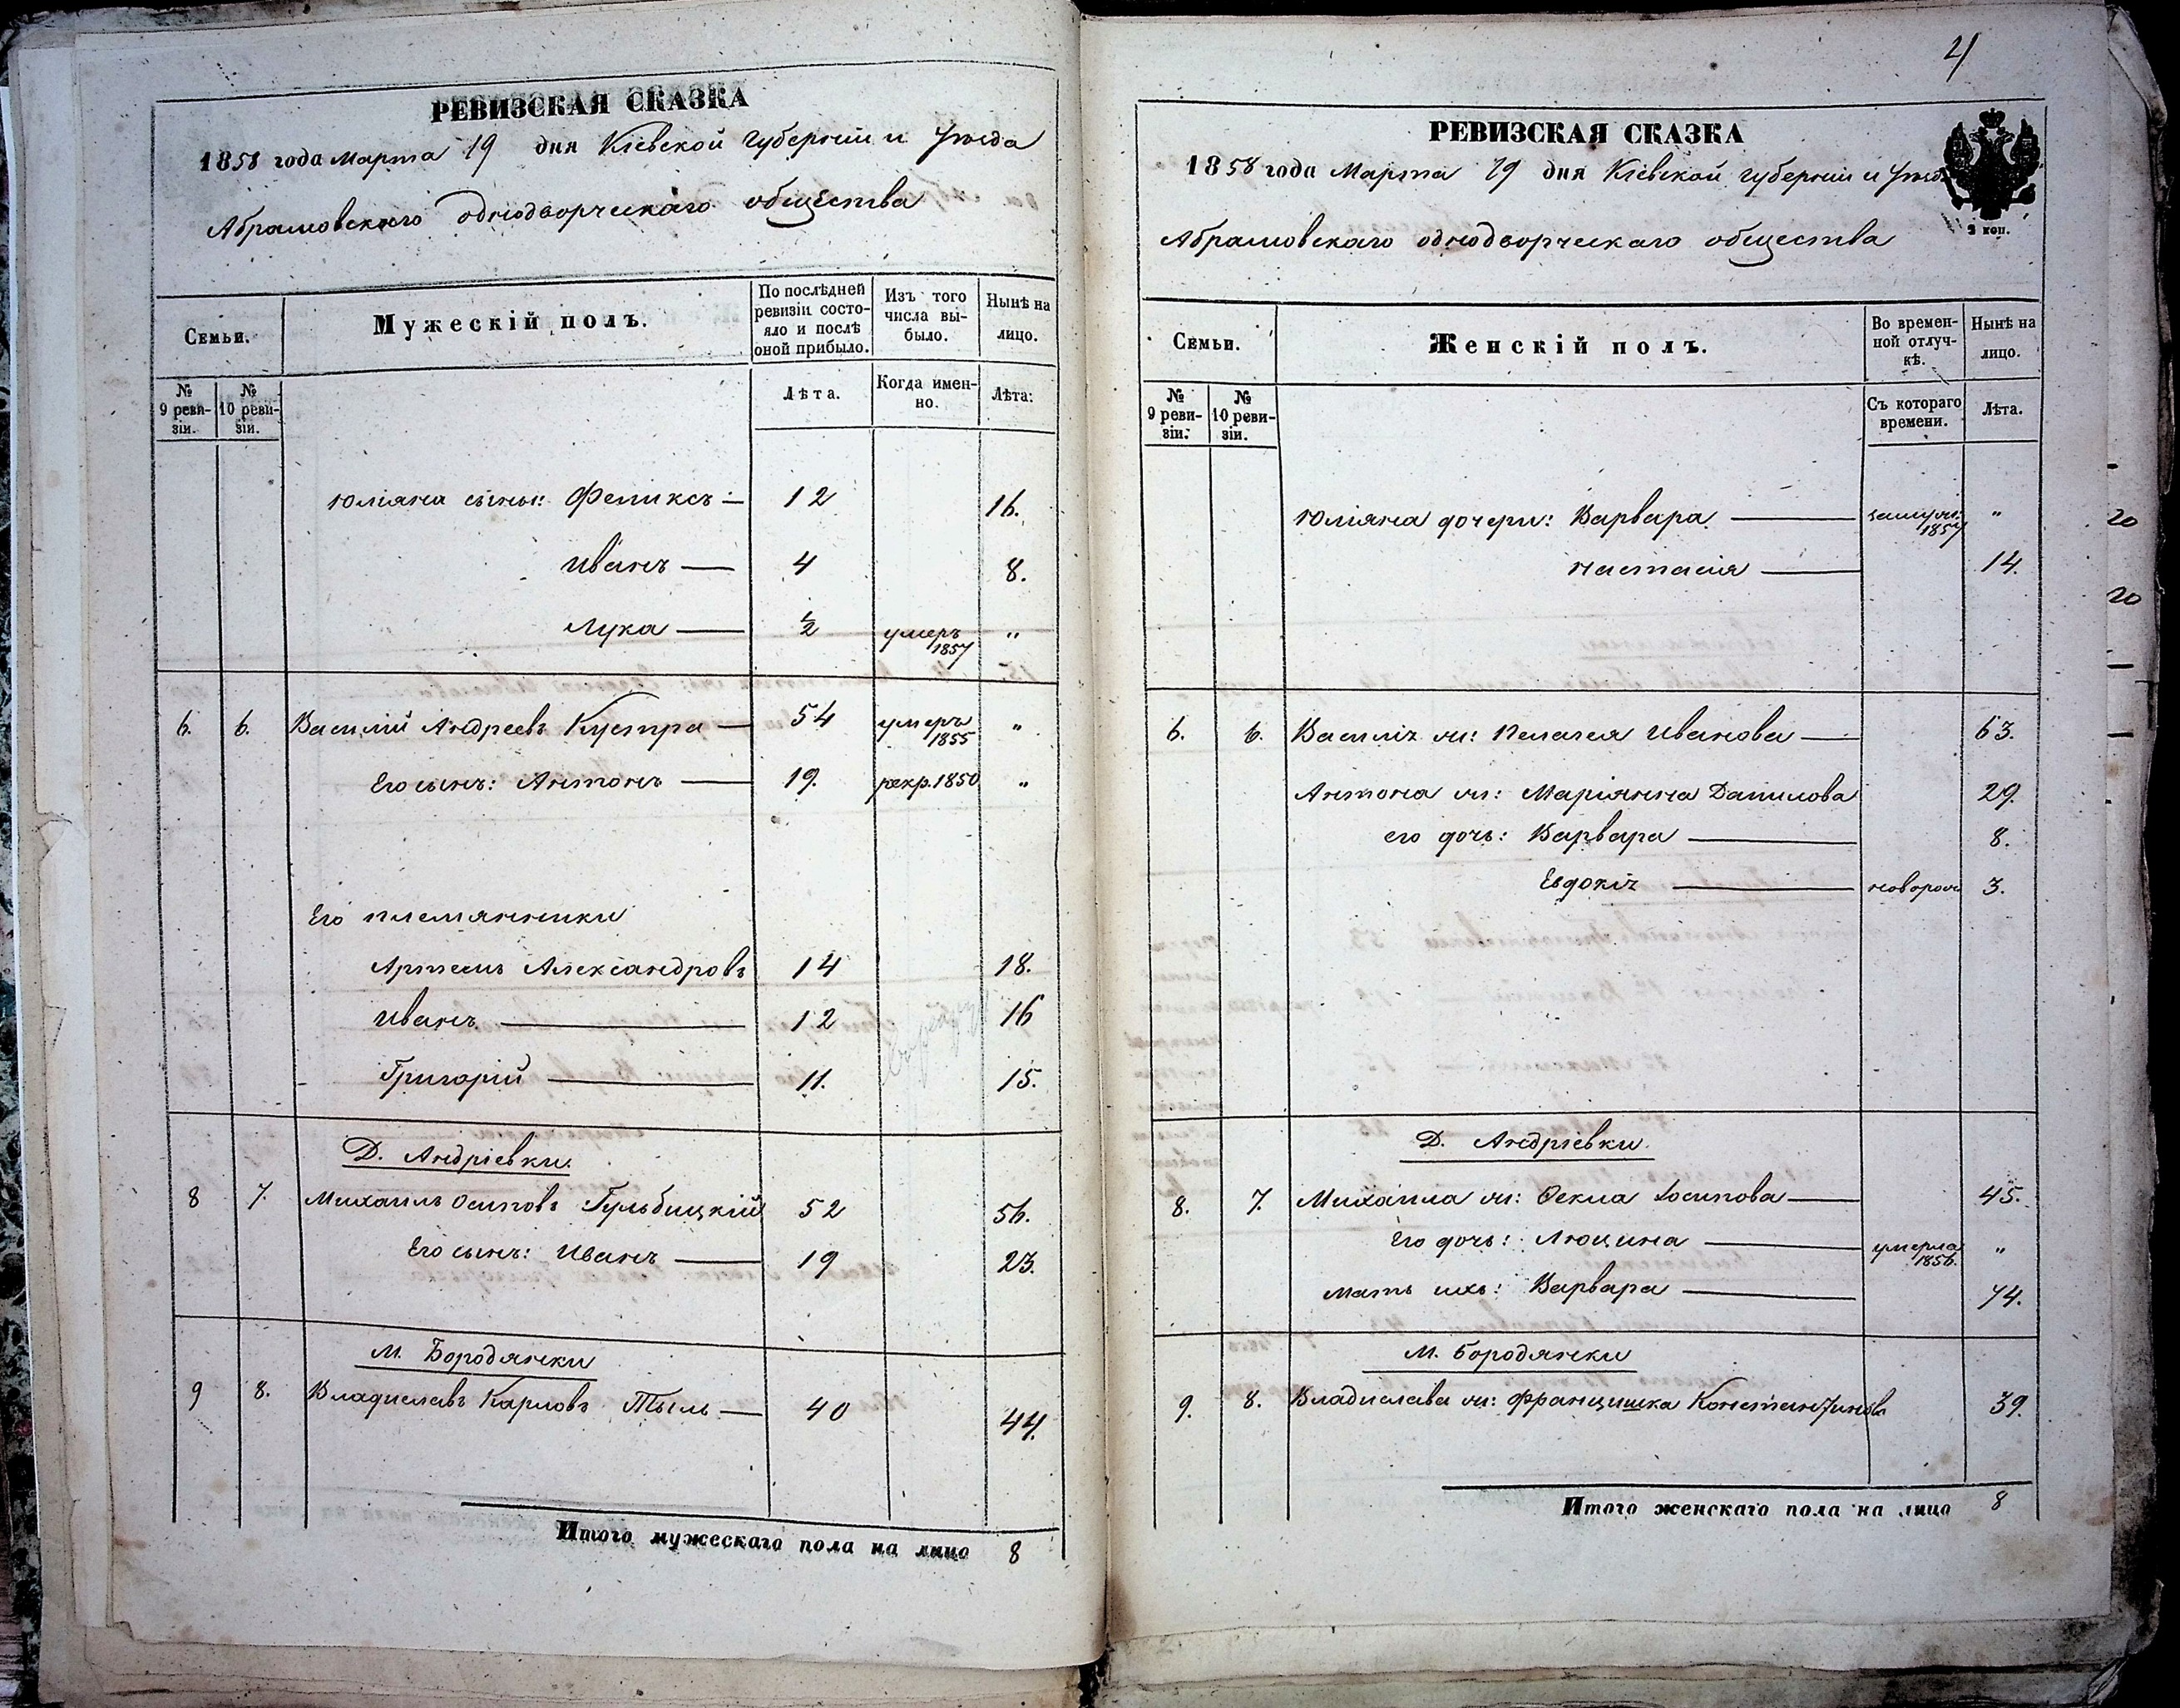 РЕВИЗСКАЯ СКАЗКА
1858 года Марта 19 дня Кіевской Губерніи и Уѣзда
Абрамовскаго однодворческаго общества
Семьи.
Мужескій полъ.
По послѣдней ревизіи состояло и послѣ оной прибыло.
Изъ того числа выбыло.
Нынѣ на лицо.
№ 9 ревизіи.
№ 10 ревизіи.
Лѣта.
Когда именно.
Лѣта:
Юліяна сыны: Феликсъ — 12 16.
Иванъ — 4 8.
Лука — ½ умеръ 1857 "
6. 6. Василій Андреевъ Кустра — 54 умеръ 1855 "
Его сынъ: Антонъ — 19. рекр. 1850 "
Его племянники
Артемъ Александровъ 14 18.
Иванъ — 12 16
Григорій — 11. 15.
Д. Андріевки.
8 7. Михаилъ Осиповъ Гульбицкій 52 56.
Его сынъ: Иванъ — 19 23.
М. Бородянки
9 8. Владиславъ Карловъ Тыль — 40 44.
Итого мужескаго пола на лицо 8
4
РЕВИЗСКАЯ СКАЗКА
1858 года Марта 19 дня Кіевской Губерніи и Уѣзд
Абрамовскаго однодворческаго общества
3 коп.
Семьи.
Женскій полъ.
Во временной отлучкѣ.
Нынѣ на лицо.
№ 9 ревизіи.
№ 10 ревизіи.
Съ котораго времени.
Лѣта.
Юліяна дочери: Варвара — замуж. 1857 "
Настасія — 14.
6. 6. Василія ж: Пелагея Иванова — 63.
Антона ж: Маріянна Данилова 29.
его дочь: Варвара — 8.
Евдокія — новорож 3.
Д. Андріевки.
8. 7. Михаила ж: Ѳекла Іосипова — 45.
Его дочь: Люцина — умерла 1856. "
Мать ихъ: Варвара — 74.
М. Бородянки
9. 8. Владислава ж: Францишка Константинова 39.
Итого женскаго пола на лицо 8
20
20